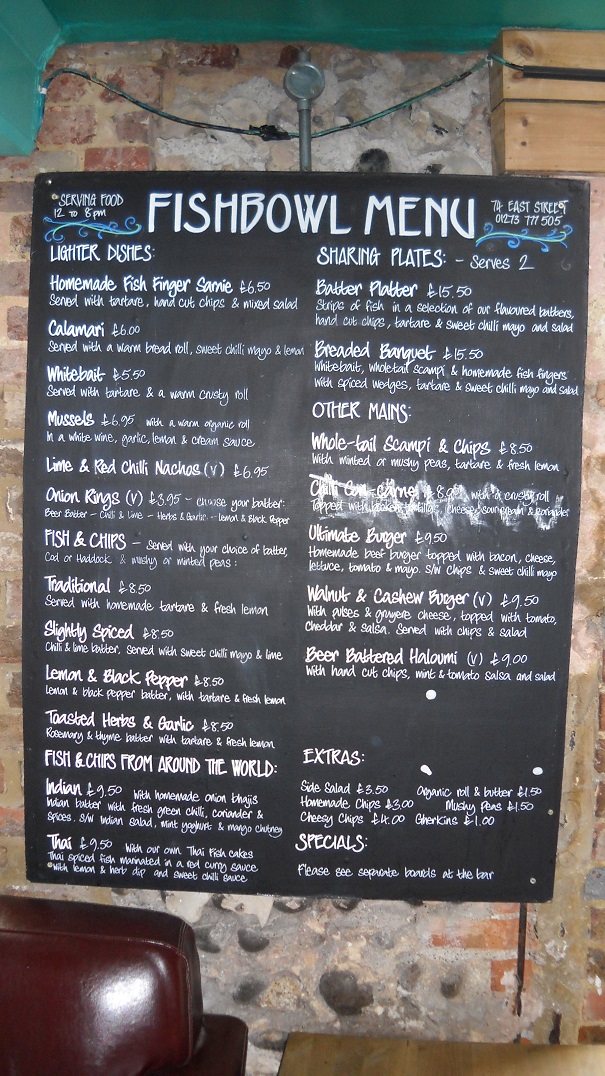 SERVING FOOD
12 to 8pm
FISHBOWL MENU
74 EAST STREET
01273 777 505
LIGHTER DISHES:
Homemade Fish Finger Sarnie £6.50
Served with tartare, hand cut chips & mixed salad
Calamari £6.00
Served with a warm bread roll, sweet chilli mayo & lemon
Whitebait £5.50
Served with tartare & a warm crusty roll
Mussels £6.95 with a warm organic roll
In a white wine, garlic, lemon & cream sauce
Lime & Red Chilli Nachos (v) £6.95
Onion Rings (v) £3.95 - choose your batter:
Beer Batter - Chilli & Lime - Herbs & Garlic - Lemon & Black Pepper
FISH & CHIPS - Served with your choice of batter,
Cod or Haddock & mushy or minted peas:
Traditional £8.50
Served with homemade tartare & fresh lemon
Slightly Spiced £8.50
Chilli & lime batter, served with sweet chilli mayo & lime
Lemon & Black Pepper £8.50
Lemon & black pepper batter, with tartare & fresh lemon
Toasted Herbs & Garlic £8.50
Rosemary & thyme batter with tartare & fresh lemon
FISH & CHIPS FROM AROUND THE WORLD:
Indian £9.50 with homemade onion bhajis
Indian batter with fresh green chilli, coriander &
spices. s/w Indian salad, mint yoghurt & mango chutney
Thai £9.50 with our own Thai Fish cakes
Thai spiced fish marinated in a red curry sauce
with lemon & herb dip and sweet chilli sauce
SHARING PLATES: - Serves 2
Batter Platter £15.50
Strips of fish in a selection of our flavoured batters,
hand cut chips, tartare & sweet chilli mayo and salad
Breaded Banquet £15.50
Whitebait, wholetail scampi & homemade fish fingers
with spiced wedges, tartare & sweet chilli mayo and salad
OTHER MAINS:
Whole-tail Scampi & Chips £8.50
With minted or mushy peas, tartare & fresh lemon
Chilli Con-carne with a crusty roll
Topped with cheese, sour cream & coriander
Ultimate Burger £9.50
Homemade beef burger topped with bacon, cheese,
lettuce, tomato & mayo. s/w chips & sweet chilli mayo
Walnut & Cashew Burger (v) £9.50
With pulses & gruyere cheese, topped with tomato,
Cheddar & salsa. Served with chips & salad
Beer Battered Haloumi (v) £9.00
With hand cut chips, mint & tomato salsa and salad
EXTRAS:
Side Salad £3.50 Organic roll & butter £1.50
Homemade Chips £3.00 Mushy peas £1.50
Cheesy Chips £4.00 Gherkins £1.00
SPECIALS:
Please see separate boards at the bar